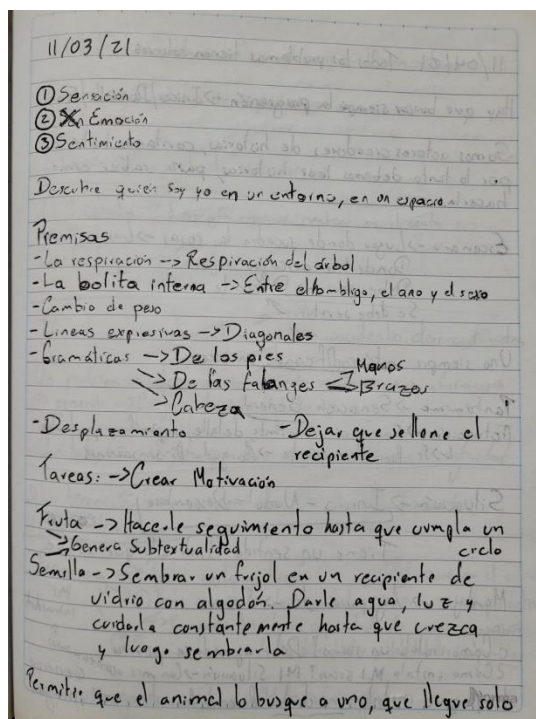 11/03/21
① Sensación
② Emoción
③ Sentimiento
Descubre quien soy yo en un entorno, en un espacio
Premisas
- La respiración -> Respiración del árbol
- La bolita interna -> Entre el ombligo, el ano y el sexo
- Cambio de peso
- Lineas expresivas -> Diagonales
- Gramáticas -> De los pies
-> De las falanges Manos Brazos
-> Cabeza
- Desplazamiento - Dejar que se llene el recipiente
Tareas: -> Crear Motivación
Fruta -> Hacerle seguimiento hasta que cumpla un ciclo
-> Genera Subtextualidad
Semilla -> Sembrar un frijol en un recipiente de
vidrio con algodón. Darle agua, luz y
cuidarla constantemente hasta que crezca
y luego sembrarla
Permitir que el animal lo busque a uno, que llegue solo